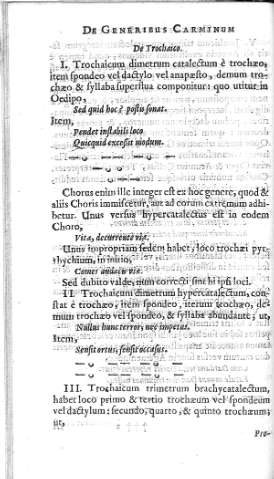 DE GENERIBUS CARMINUM
De Trochaico.
I. Trochaicum dimetrum catalectum è trochæo,
item spondeo vel dactylo vel anapæsto, demum tro-
chæo & syllaba superflua componitur: quo utitur in
Oedipo,
Sed quid hoc? postis sonat.
Item,
Pendet instabili loco
Quicquid excessit modum.
Chorus enim ille integer est ex hoc genere, quod &
aliis Choris immiscetur, aut ad eorum extremum adhi-
betur. Unus versus hypercatalectus est in eodem
Choro,
Vita, decurrente via.
Unus impropriam sedem habet, loco trochæi pyr-
rhychium, in initio,
Comes audacis viæ.
Sed dubito valde, num correcti sint hi ipsi loci.
II. Trochaicum dimetrum hypercatalectum, con-
stat è trochæo, item spondeo, iterum trochæo, de-
mum trochæo vel spondeo, & syllaba abundante; ut,
Nullus hunc terror, nec impetus.
Item,
Sensit ortus, sensit occasus.
III. Trochaicum trimetrum brachycatalectum,
habet loco primo & tertio trochæum vel spondeum
vel dactylum: secundo, quarto, & quinto trochæum;
ut,
Pro-